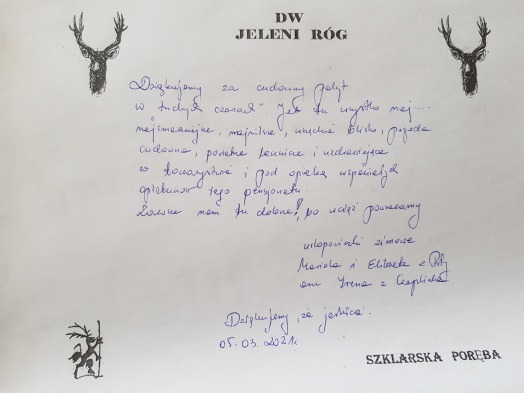 DW
JELENI RÓG
Dziękujemy za cudowny pobyt
w trudnych czasach". Jest tu wszystko naj...
najsmaczniejsze, najmilsze, wszędzie blisko, pogoda
cudowna, powietrze
w towarzystwie i pod opieką wspaniałych
opiekunów tego pensjonatu.
Zawsze nam tu dobrze!, bo wciąż powracamy
urlopowiczki zimowe
Mariola i Elżbieta z
oraz Irena z Czaplinka
Dziękujemy, za
05.03.2021r.
SZKLARSKA PORĘBA